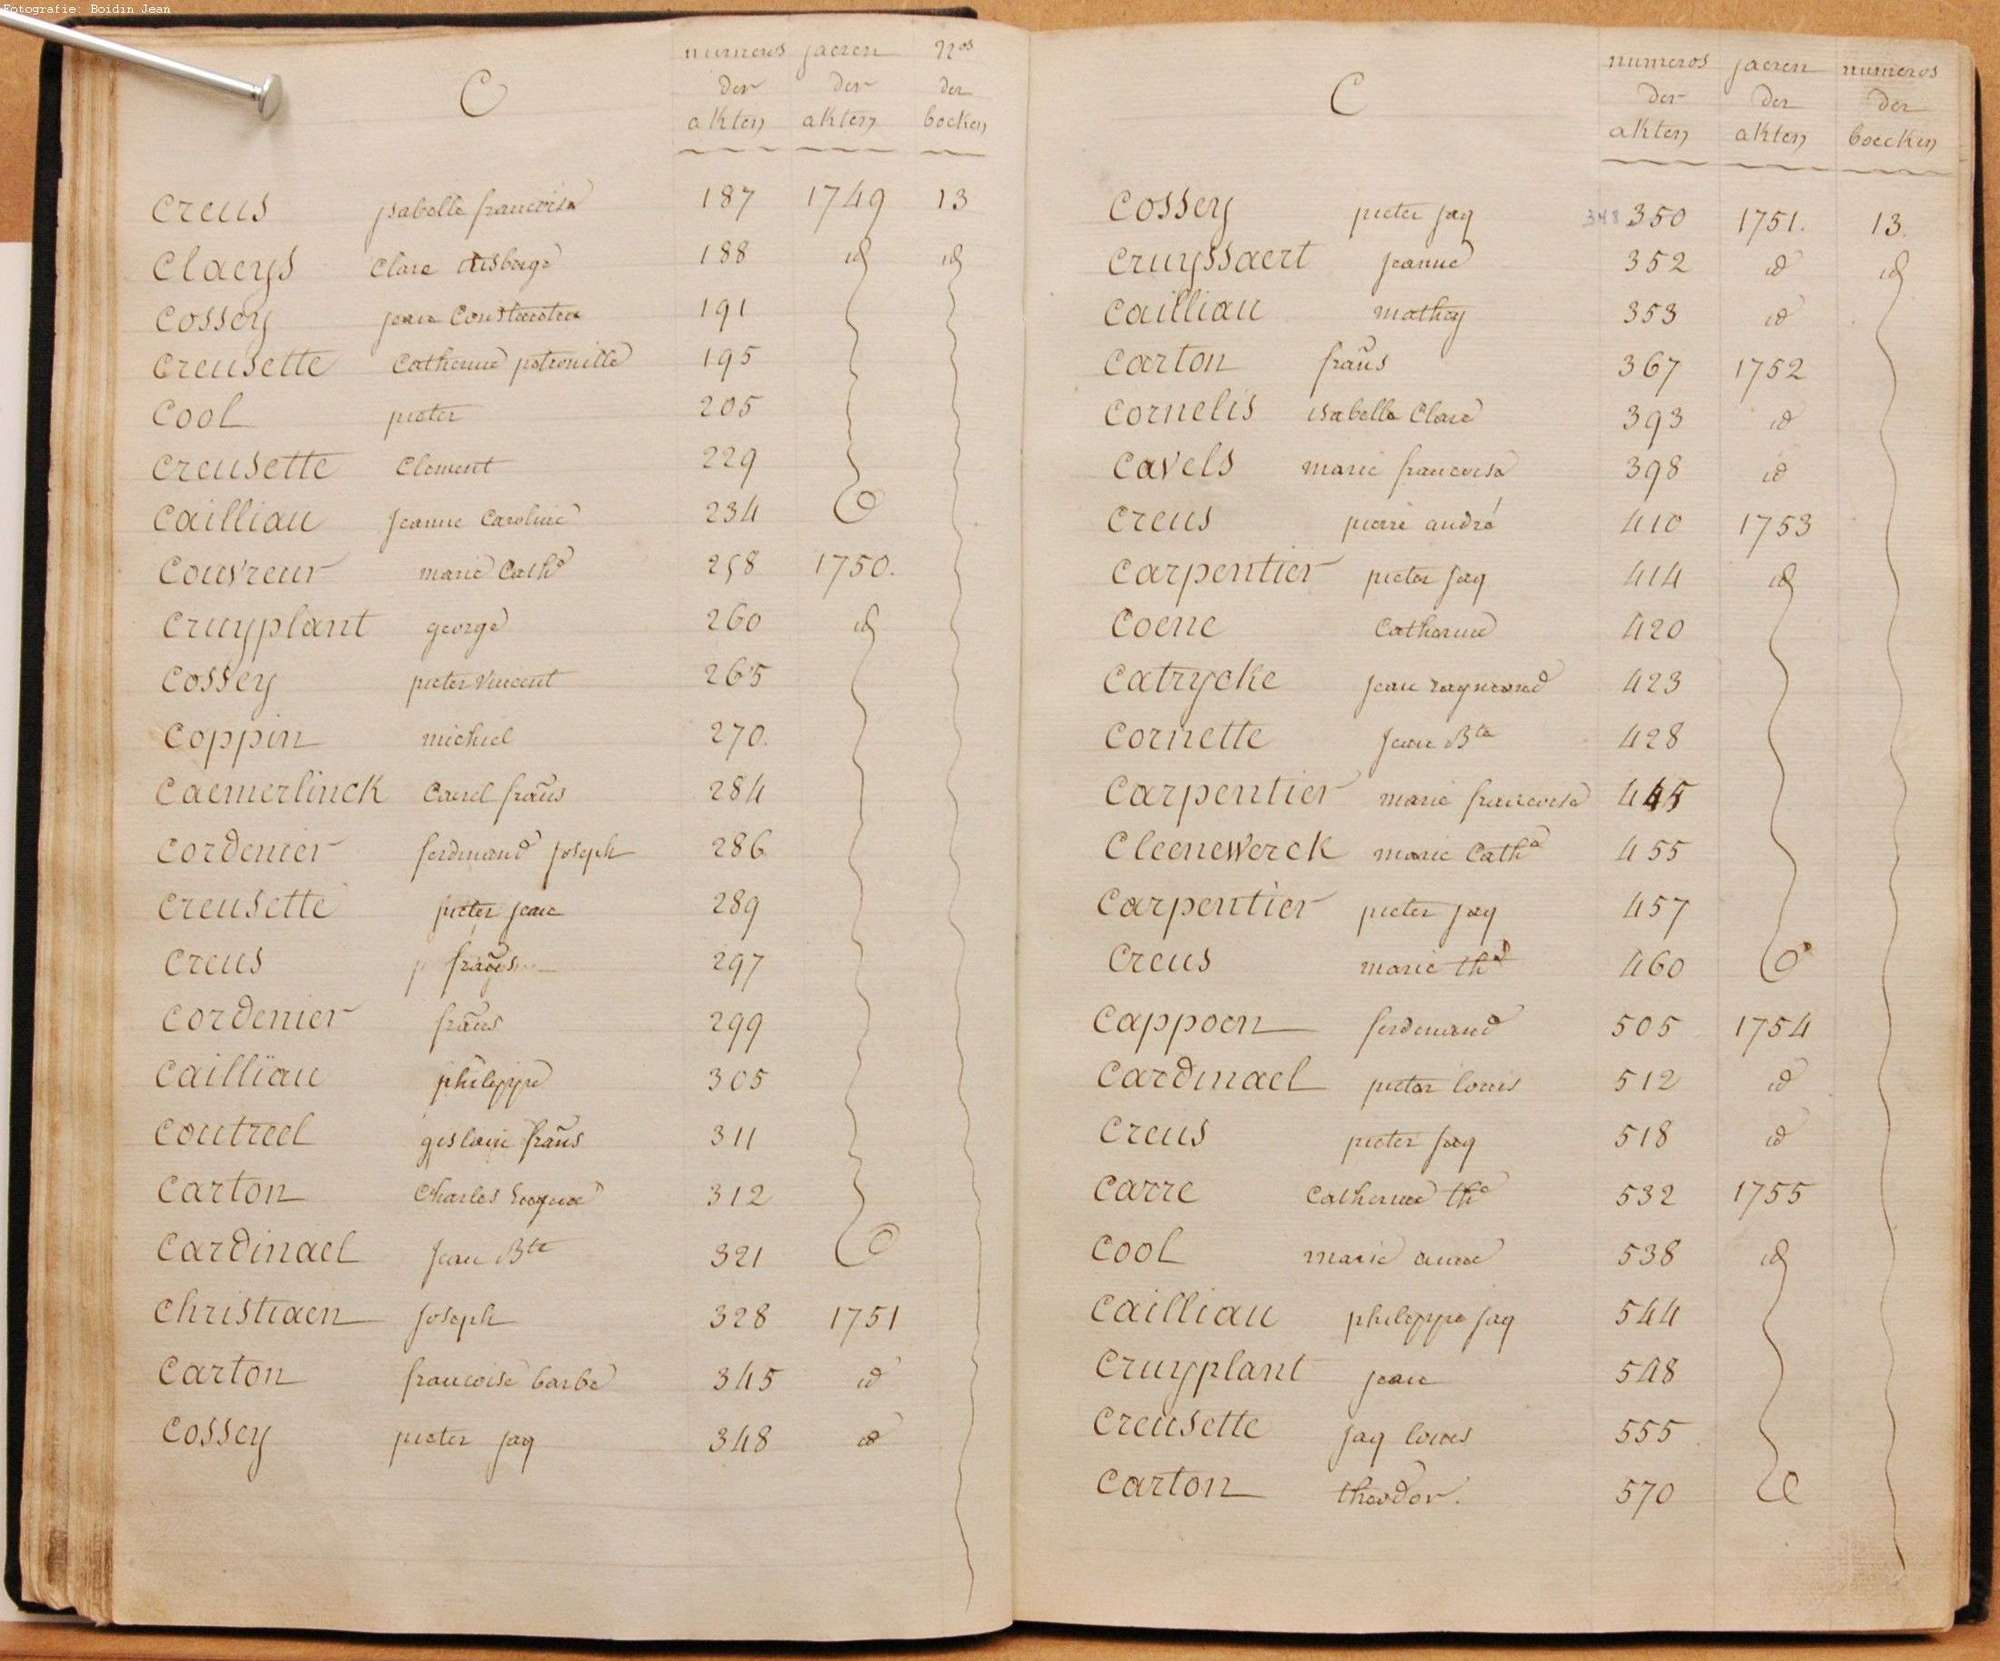 Fotografie: Boidin Jean
C
numeros der akten
jaeren der akten
Nos der boeken
Creus ysabelle francoise 187 1749 13
Claeys Clare 188 id id
Cossey jean Constantin 191
Creusette Catherine petronille 195
Cool pieter 205
Creusette Clement 229
Cailliau Jeanne Caroline 234
Couvreur marie Cathe 258 1750.
Cruyplant george 260 id
Cossey pieter vincent 265
Coppin michiel 270.
Caemerlinck Carel frans 284
Cordenier ferdinand joseph 286
Creusette pieter jean 289
Creus frans 297
Cordenier frans 299
Cailliau philippe 305
Coutreel gislain frans 311
Carton Charles 312
Cardinael Jean Bte 321
Christiaen Joseph 328 1751
Carton francoise barbe 345 id
Cossey pieter jaq 348 id
C
numeros der akten
jaeren der akten
numeros der boecken
Cossey pieter jaq 348 350 1751. 13.
Cruyssaert jeanne 352 id id
Cailliau mathey 353 id
Carton frans 367 1752
Cornelis isabelle Clare 393 id
Cavels marie francoise 398 id
Creus pierre andré 410 1753
Carpentier pieter jaq 414 id
Coene Catherine 420
Catrycke jean raymond 423
Cornette Jean Bte 428
Carpentier marie francoise 445
Cleenewerck marie Cathe 455
Carpentier pieter jaq 457
Creus marie the 460
Cappoen ferdinand 505 1754
Cardinael pieter louis 512 id
Creus pieter jaq 518 id
Carre Catherine the 532 1755
Cool marie anne 538 id
Cailliau philippe jaq 544
Cruyplant jean 548
Creusette jaq louis 555
Carton theodor. 570